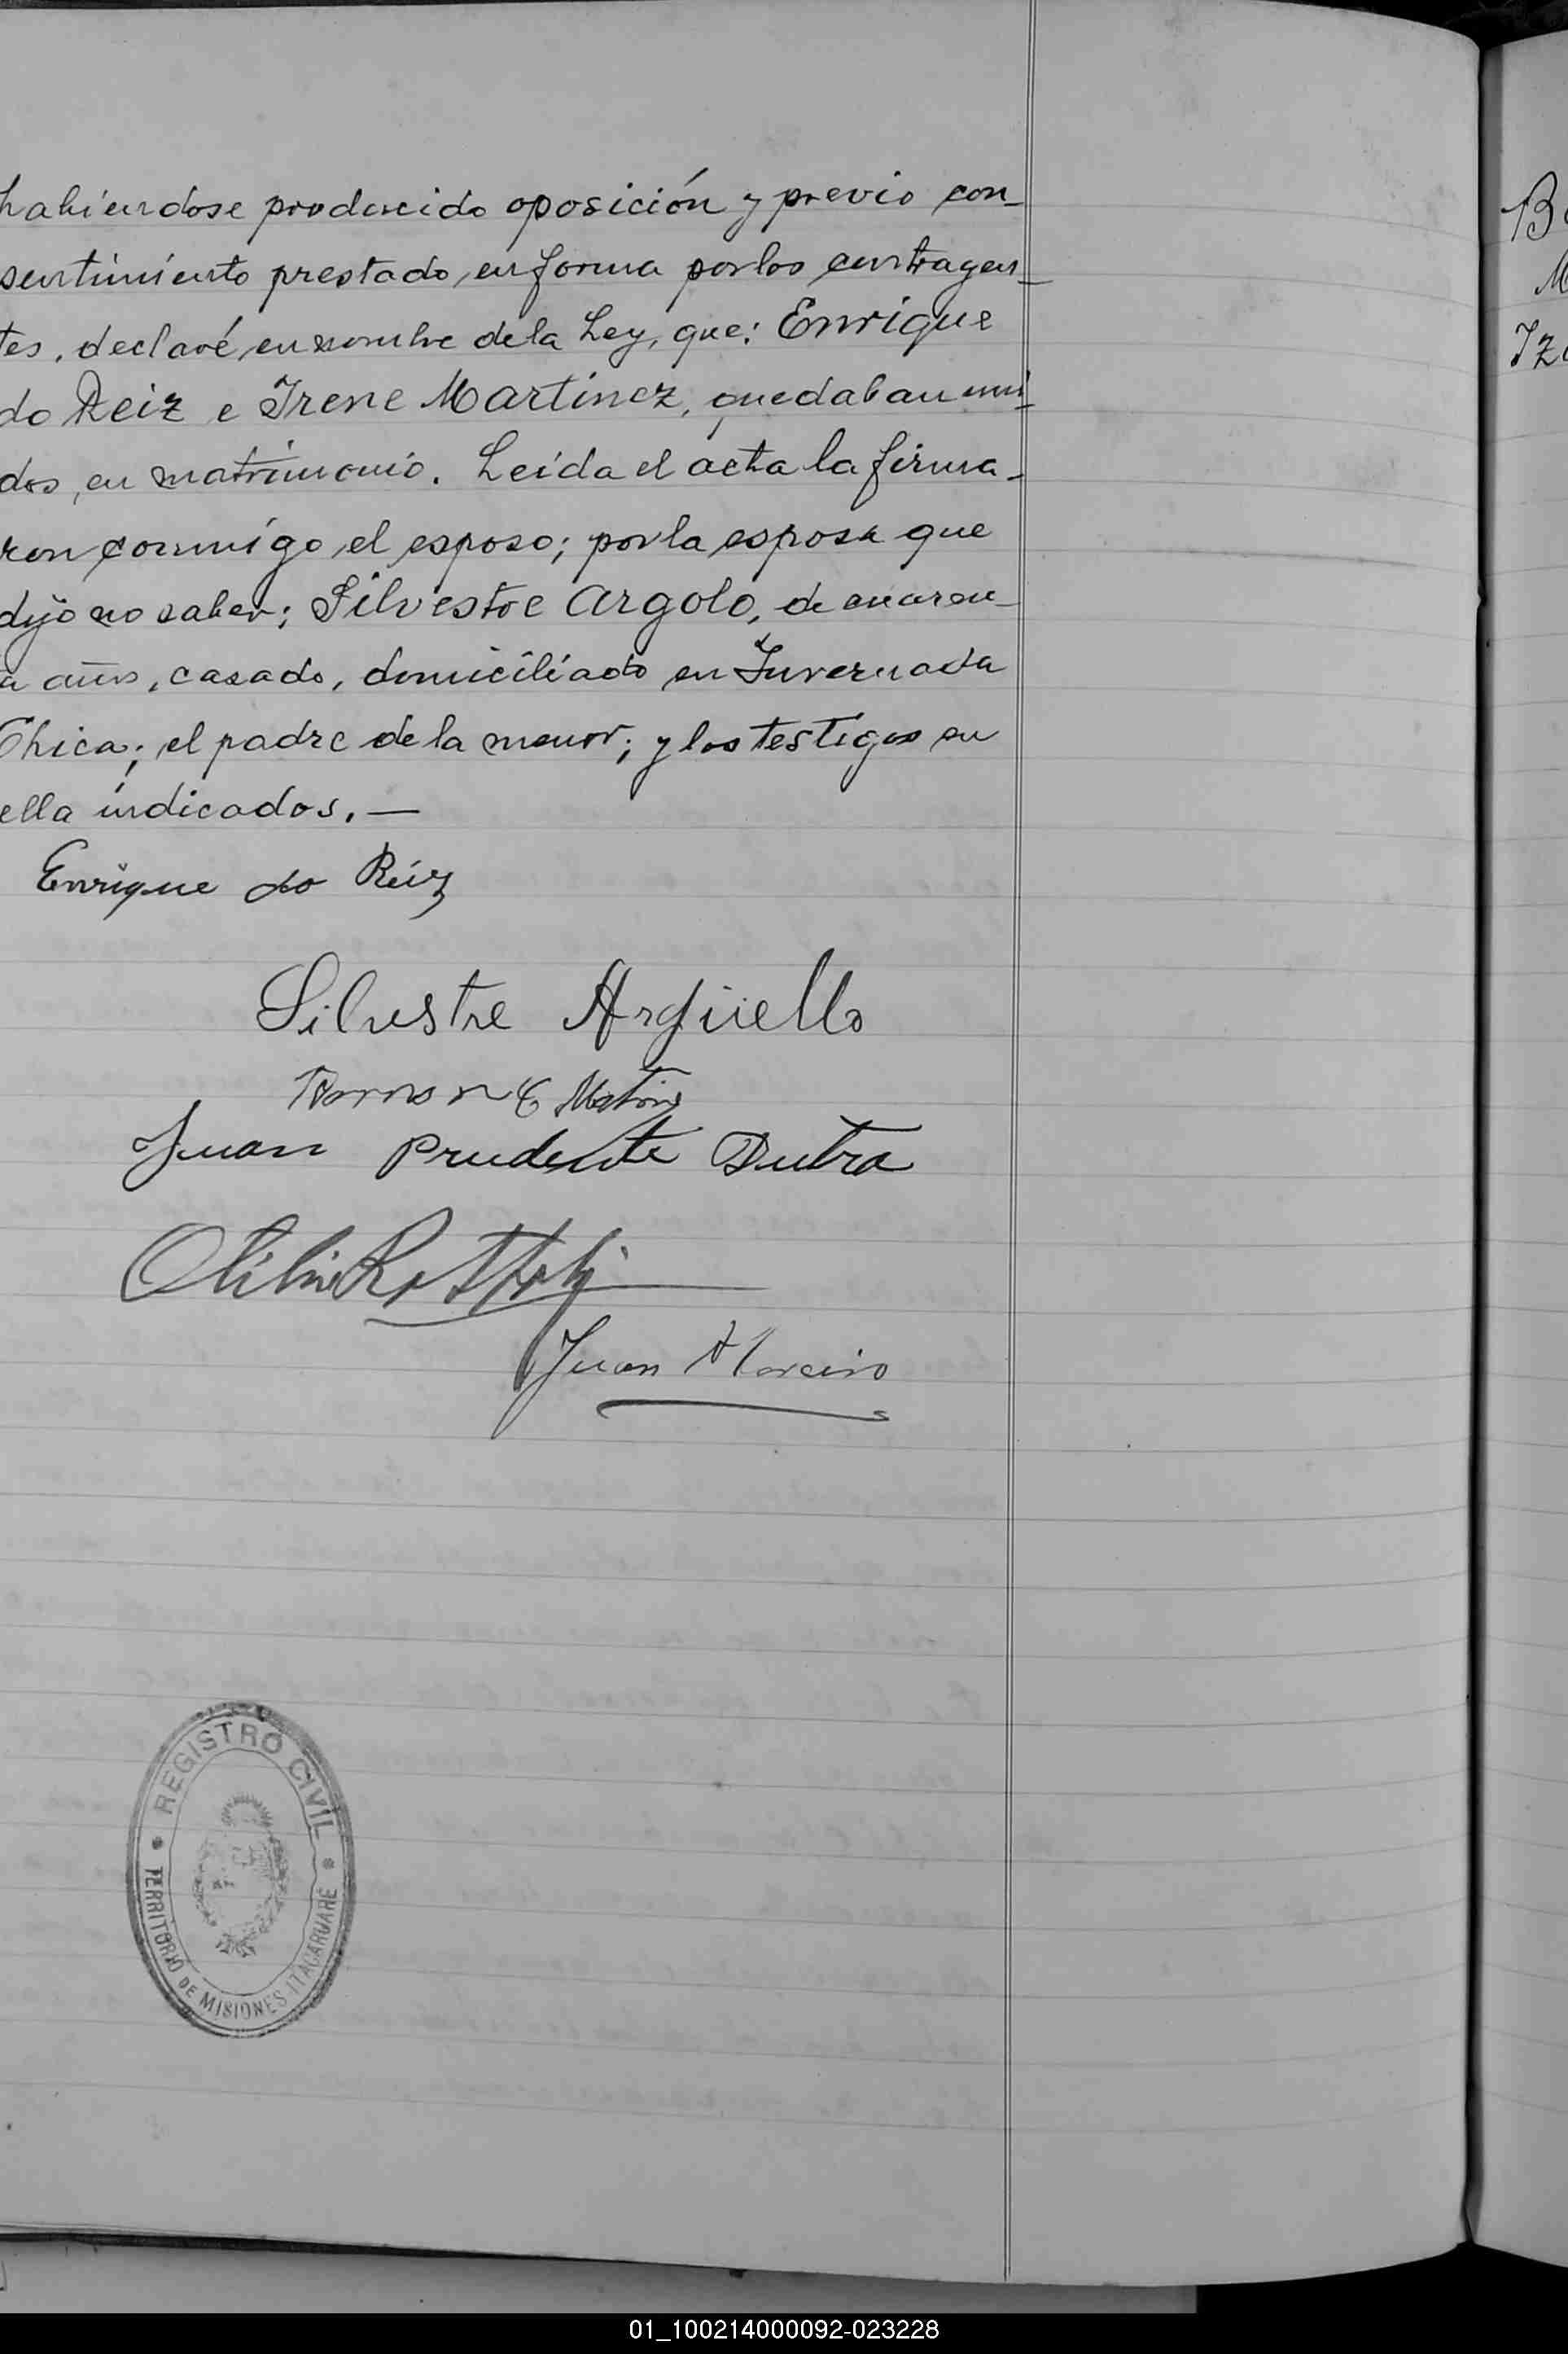 habiendose producido oposición y previo con-
sentimiento prestado, en forma por los contrayen-
tes, declaré, en nombre de la Ley, que: Enrique
do Reiz e Irene Martinez, quedaban uni-
dos, en matrimonio. Leída el acta la firma-
ron conmigo, el esposo; por la esposa que
dijo no saber; Silvestre Argolo, de cuaren-
a años, casado, domiciliado en Invernada
Chica; el padre de la menor; y los testigos en
ella indicados.—
Enrique do Reiz
Silvestre Argüello
Juan Prudente Dutra
Juan
REGISTRO CIVIL
TERRITORIO DE MISIONES ITACARUARE
01_100214000092-023228